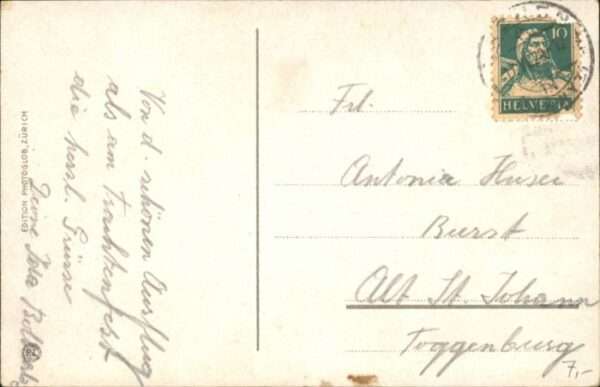 Von d. schönen Ausflug
als am Trachtenfest
die herzl. Grüsse
Deine Ida
EDITION PHOTOGLOB, ZÜRICH
10
HELVETIA
Frl.
Antonia Huser
Burst
Alt St. Johann
Toggenburg
7,-